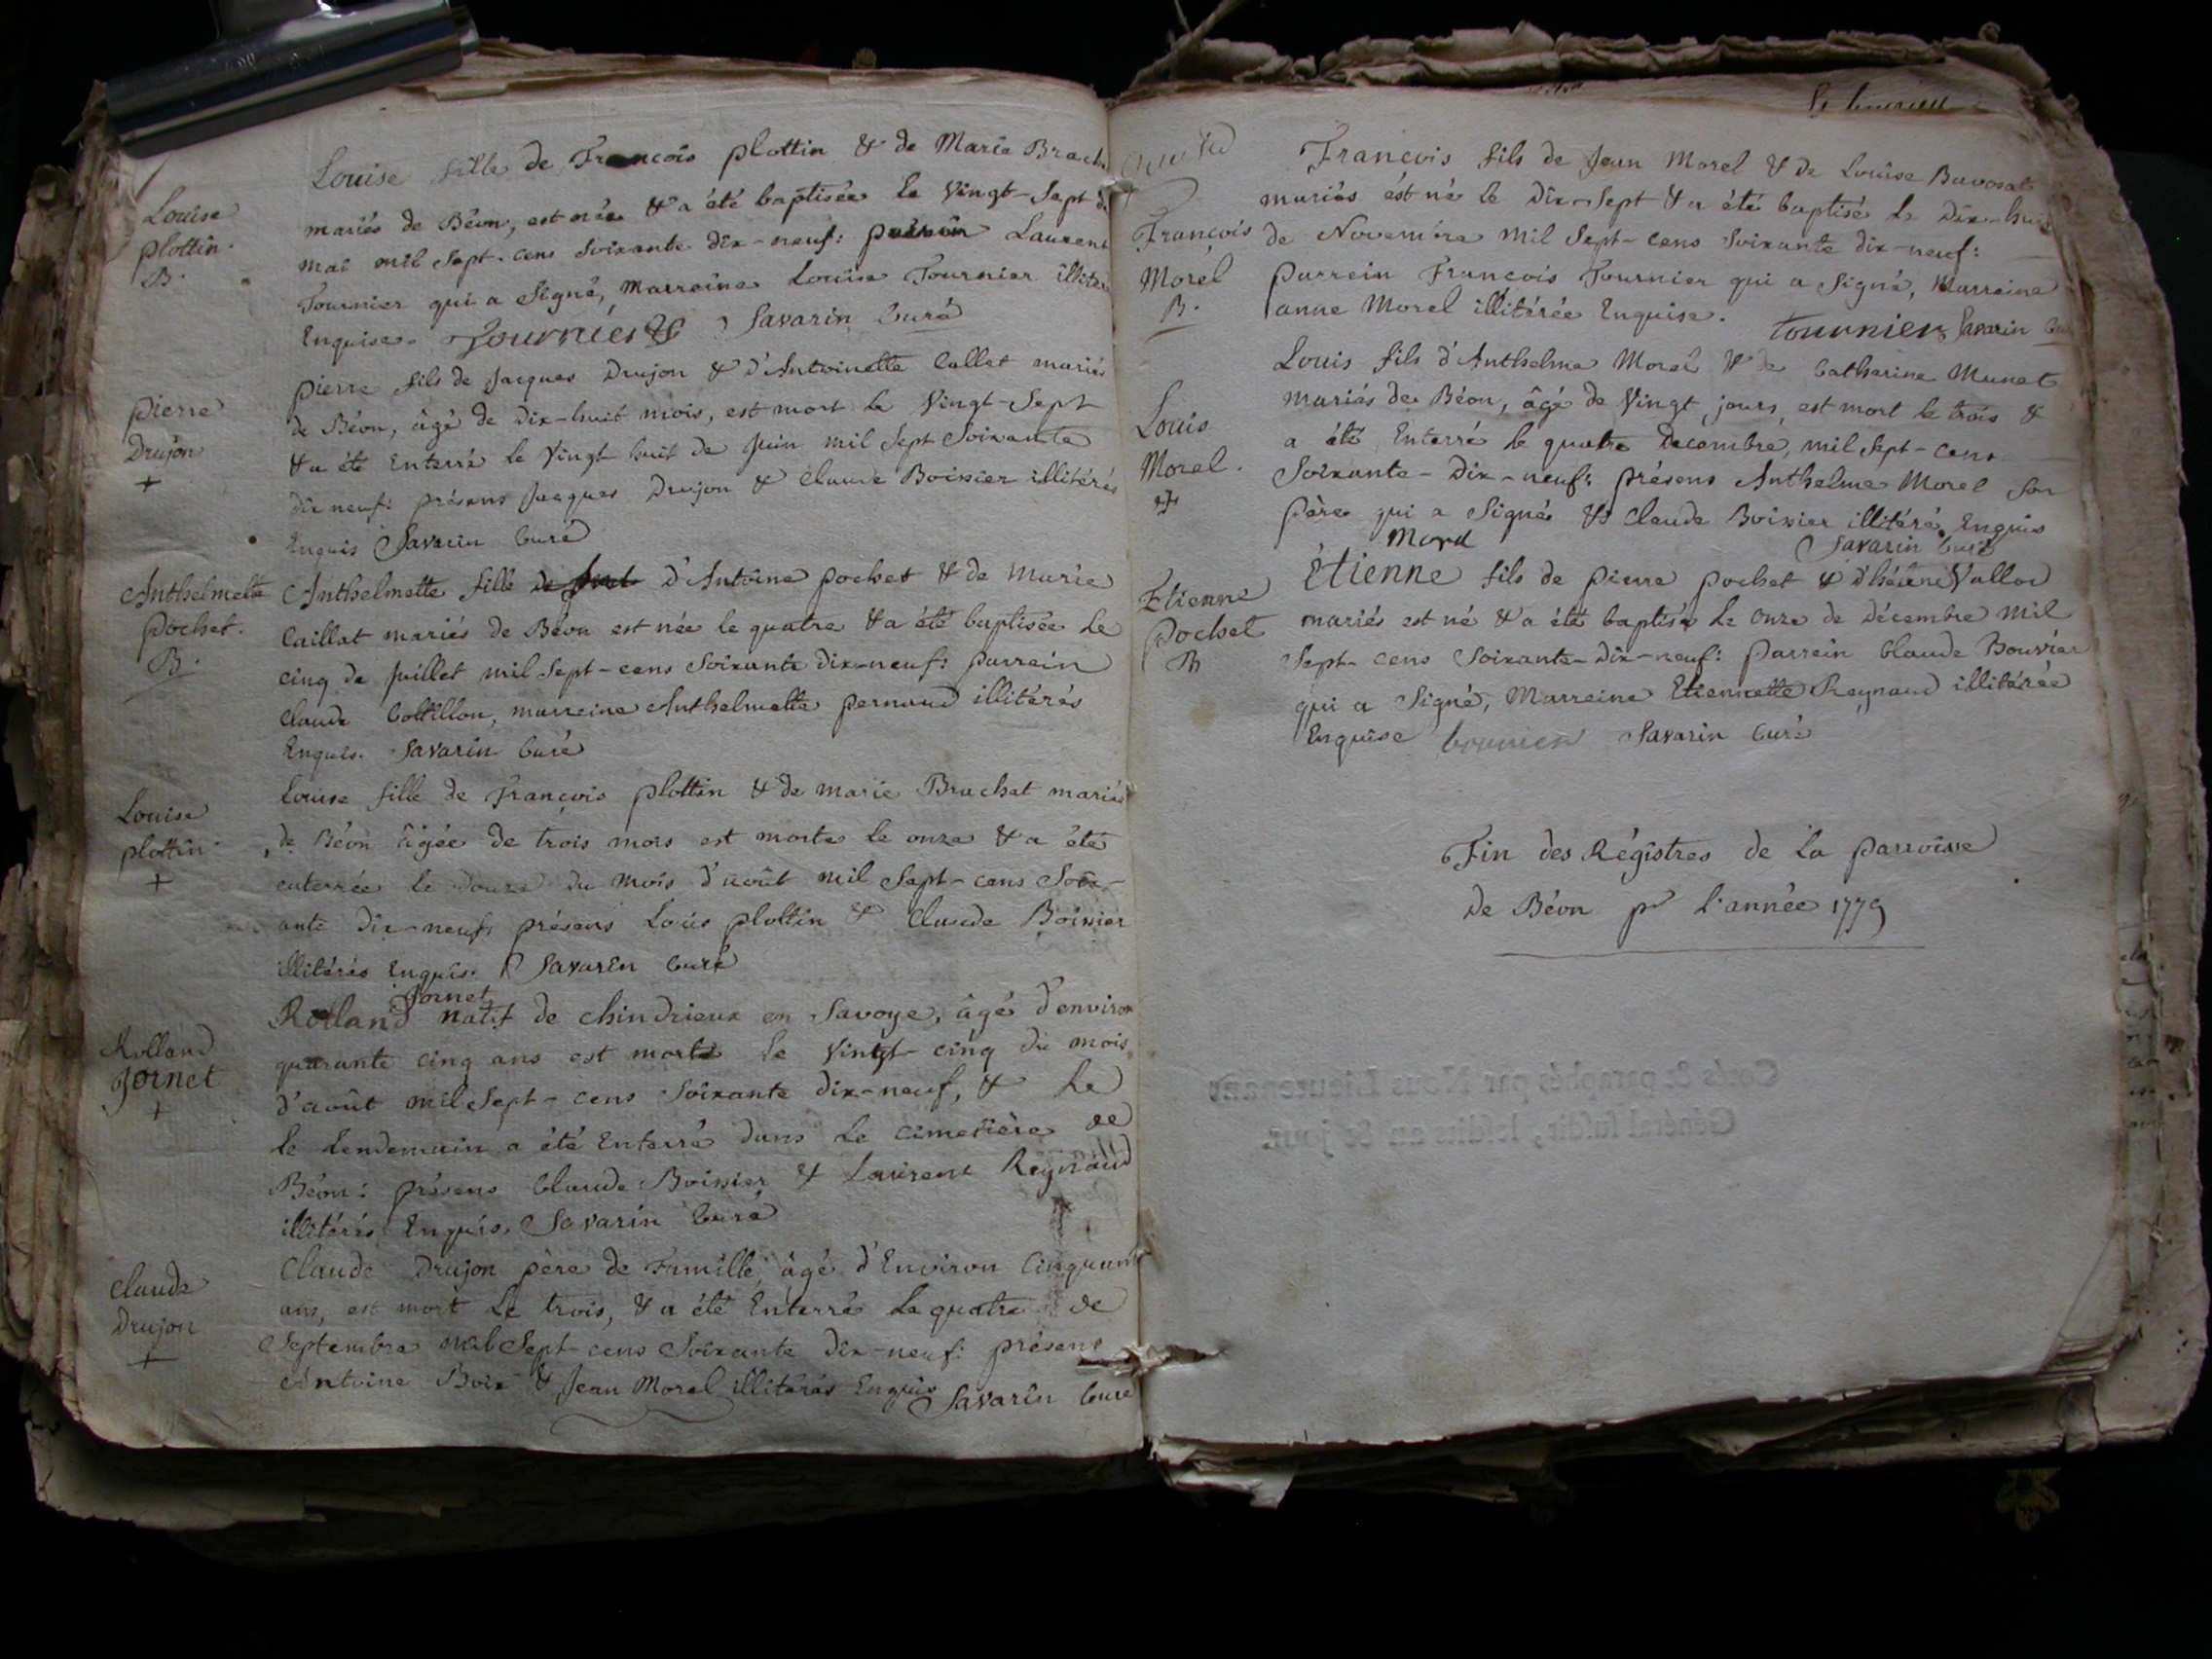 Louise
plottin
B.
Louise fille de François plottin & de Marie Brach
mariés de Béon, est née & a été baptisée le Vingt-Sept de
mai mil Sept-cens Soixante dix-neuf: parrain Laurent
Tournier qui a Signé, marreine Louise Tournier illitér
Enquise. Tournier Savarin Curé
pierre
Drujon
+
pierre fils de Jacques Drujon & d'Antoinette Callet mariés
de Béon, âgé de dix-huit mois, est mort le Vingt-Sept
& a été Enterré le Vingt huit de Juin mil Sept Soixante
dix neuf: présens Jacques Drujon & Claude Boissier illitérés
Enquis Savarin Curé
Anthelmette
pochet.
B.
Anthelmette fille de d'Antoine pochet & de Marie
Caillat mariés de Béon est née le quatre & a été baptisée le
cinq de Juillet mil Sept-cens Soixante dix-neuf: parrein
Claude Cottillon, marreine Anthelmette pernaud illitérés
Enquis. Savarin Curé
Louise
plottin
+
Louise fille de François plottin & de marie Brachet mariés
de Béon âgée de trois mois est morte le onze & a été
enterrée le douze du mois d'août mil Sept-cens Soix-
ante dix-neuf: présens Loüis plottin & Claude Boissier
illitérés Enquis. Savarin Curé
Rolland
Jornet
+
Jornet
Rolland natif de chindrieux en Savoye, âgé d'environ
quarante cinq ans est mort le Vingt-cinq du mois
d'août mil Sept-cens Soixante dix-neuf, & le
le Lendemain a été Enterré dans le Cimetière de
Béon: présens Claude Boissier & Laurent Reynaud
illitérés Enquis. Savarin Curé
Claude
Drujon
+
Claude Drujon père de Famille, âgé d'Environ Cinquant
ans, est mort le trois, & a été Enterré le quatre de
Septembre mil Sept-cens Soixante dix-neuf: présens
Antoine Boix & Jean Morel illitérés Enquis Savarin Curé
François
Morel
B.
François fils de Jean Morel & de Louise Bavosat
mariés ést né le Dix-Sept & a été baptisé le Dix-huit
de Novembre mil Sept-cens Soixante dix-neuf:
parrein François Tournier qui a Signé, Marreine
anne Morel illitérée Enquise. Tournier Savarin Cu
Louis
Morel.
+
Louis fils d'Anthelme Morel & de Catherine Munet
mariés de Béon, âgé de Vingt jours, est mort le trois &
a été Enterré le quatre Decembre, mil Sept-cens
Soixante-Dix-neuf: présens Anthelme Morel son
père qui a Signé & Claude Boissier illitéré Enquis
Morel Savarin Curé
Etienne
Pochet
B
Étienne fils de pierre pochet & d'héleine Vallod
mariés est né & a été baptisé le onze de décembre mil
Sept-cens Soixante-Dix-neuf: Parrein Claude Bouvier
qui a Signé, Marreine Etiennette Reynaud illitérée
Enquise bouvier Savarin Curé
Fin des Régistres de la parroisse
de Béon pr l'année 1779
Cotés & paraphés par Nous Lieutenant
Général susdit, lesdits an & jour.